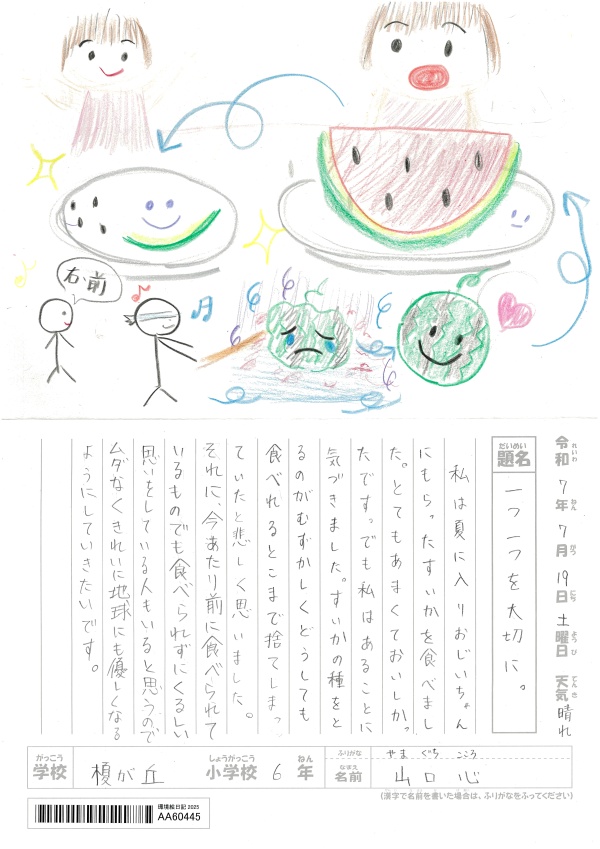 右、前
令和7年7月19日土曜日 天気 晴れ
れいわ ねん がつ にち よう び てん き
だいめい
題名
一つ一つを大切に。
私は夏に入りおじいちゃん
にもらったすいかを食べまし
た。とてもあまくておいしかっ
たですっでも私はあることに
気づきました。すいかの種をと
るのがむずかしくどうしても
食べれるとこまで捨てしまっ
ていたと悲しく思いました。
それに、今あたり前に食べられて
いるものでも食べられずにくるしい
思いをしている人もいると思うので
ムダなくきれいに地球にも優しくなる
ようにしていきたいです。
がっこう しょうがっこう ねん
学校 榎が丘 小学校 6年
ふりがな やま ぐち こころ
なまえ
名前 山口 心
(漢字で名前を書いた場合は、ふりがなをふってください)
環境絵日記 2025
AA60445